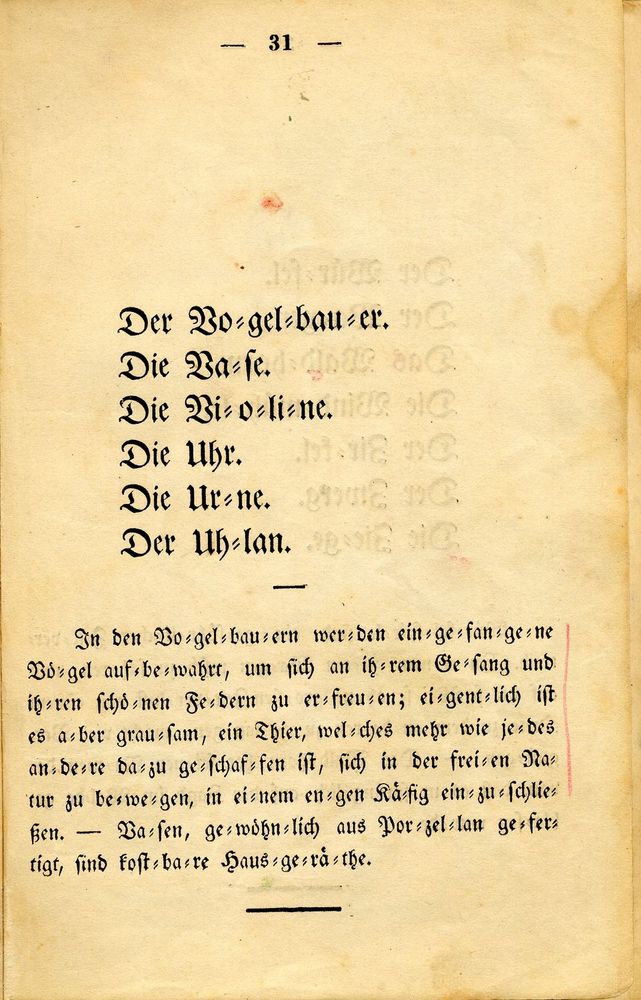 — 31 —
Der Vo⸗gel⸗bau⸗er.
Die Va⸗se.
Die Vi⸗o⸗li⸗ne.
Die Uhr.
Die Ur⸗ne.
Der Uh⸗lan.
In den Vo⸗gel⸗bau⸗ern wer⸗den ein⸗ge⸗fan⸗ge⸗ne
Vö⸗gel auf⸗be⸗wahrt, um sich an ih⸗rem Ge⸗sang und
ih⸗ren schö⸗nen Fe⸗dern zu er⸗freu⸗en; ei⸗gent⸗lich ist
es a⸗ber grau⸗sam, ein Thier, wel⸗ches mehr wie je⸗des
an⸗de⸗re da⸗zu ge⸗schaf⸗fen ist, sich in der frei⸗en Na⸗
tur zu be⸗we⸗gen, in ei⸗nem en⸗gen Kä⸗fig ein⸗zu⸗schlie⸗
ßen. — Va⸗sen, ge⸗wöhn⸗lich aus Por⸗zel⸗lan ge⸗fer⸗
tigt, sind kost⸗ba⸗re Haus⸗ge⸗rä⸗the.